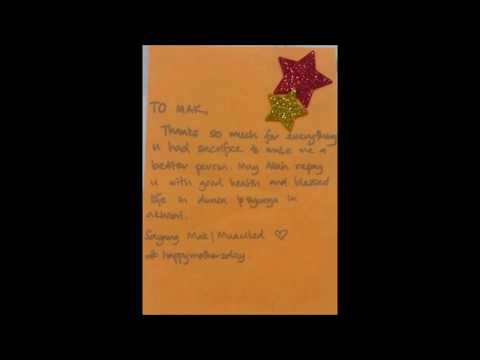 TO MAK,
Thanks so much for everything
u had sacrifice to make me a
better person. May Allah repay
u with good health and blessed
life in dunia & syurga in
akhirat.
Sayang Mak |
#happymothersday